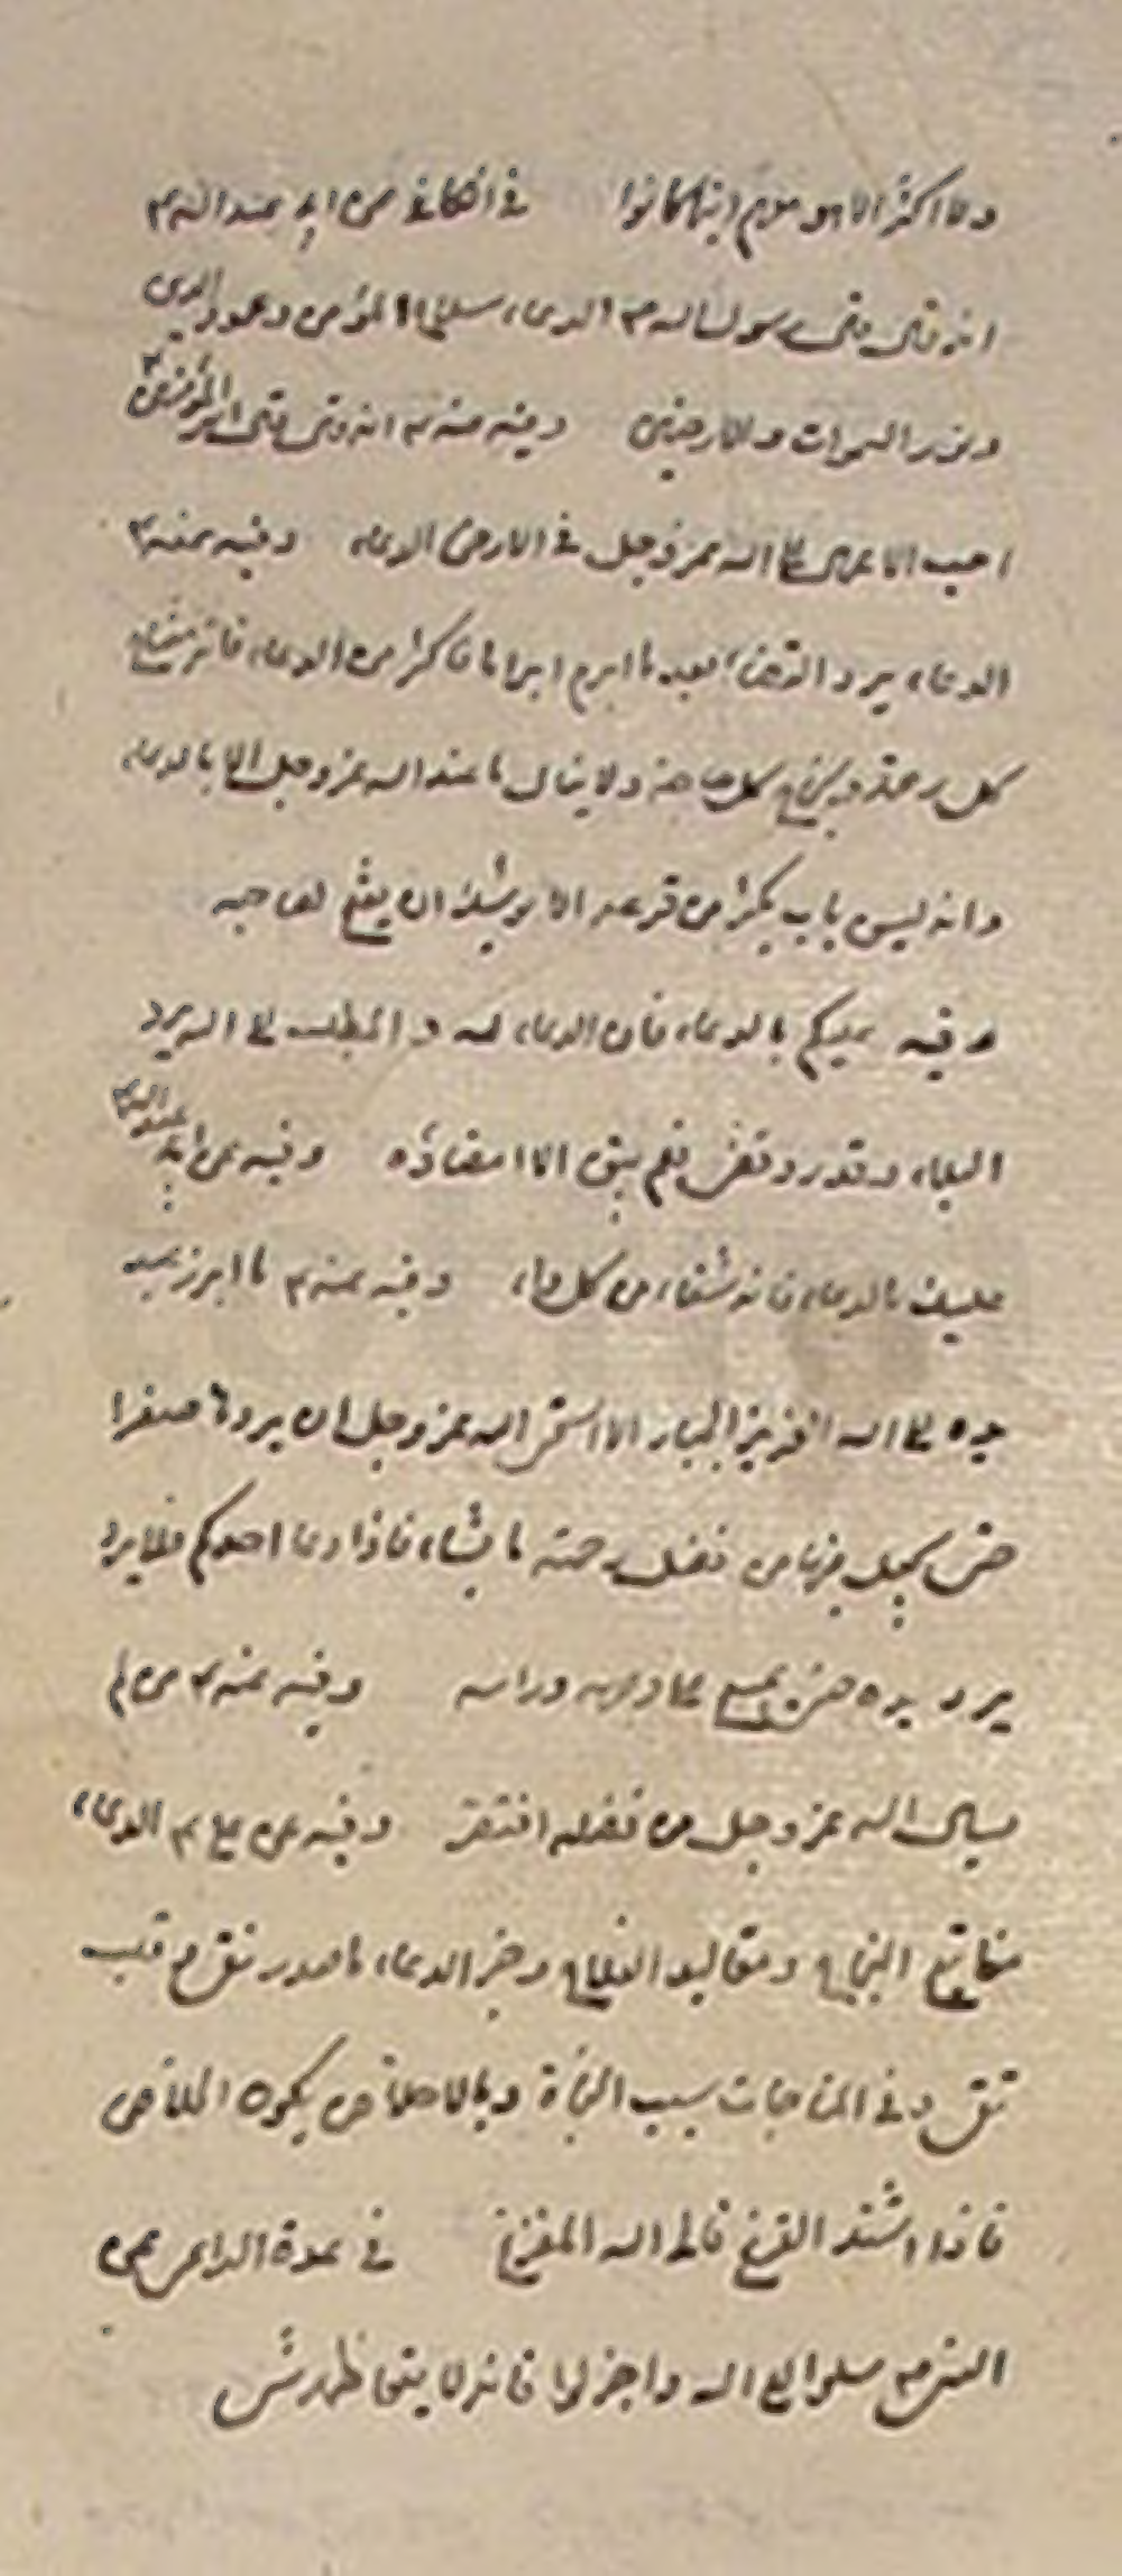 ولا اكثر الا هو معهم اينما كانوا في الكافي عن ابي عبد الله ع
انه قال قال رسول الله ص الدعاء سلاح المؤمن وعمود الدين
ونور السموات والارضين وفيه عنه ع انه قال قال امير المؤمنين ع
احب الاعمال الى الله عز وجل في الارض الدعاء وفيه عنه ع
الدعاء يرد القضاء بعد ما ابرم ابراما فاكثر من الدعاء فانه مفتاح
كل رحمة ونجاح كل حاجة ولا ينال ما عند الله عز وجل الا بالدعاء
وانه ليس باب يكثر من قرعه الا يوشك ان يفتح لصاحبه
وفيه عليكم بالدعاء فان الدعاء لله والطلب الى الله يرد
البلاء وقد قدر وقضى فلم يبق الا امضاؤه وفيه عن ابي عبد الله ع
عليك بالدعاء فانه شفاء من كل داء وفيه عنه ع ما ابرز عبد
يده الى الله العزيز الجبار الا استحى الله عز وجل ان يردها صفرا
حتى يجعل فيها من فضل رحمته ما يشاء فاذا دعا احدكم فلا يرد
يرد يده حتى يمسح على وجهه وراسه وفيه عنه ع من لم
يسال الله عز وجل من فضله افتقر وفيه عن علي ع الدعاء
مفاتيح النجاح ومقاليد الفلاح وخير الدعاء ما صدر نقي وقلب
تقي وفي المناجات سبب النجاة وبالاخلاص يكون الخلاص
فاذا اشتد الفزع فالى الله المفزع في عدة الداعي عن
النبي ص سلوا الله واجزلوا فانه لا يتعاظمه شي